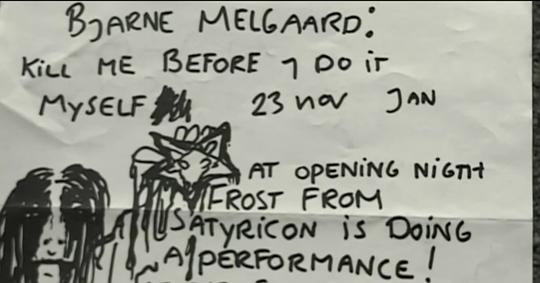 BJARNE MELGAARD:
KiLL ME BEFORE I DO iT
MYSELF 23 NOV JAN
AT OPENING NIGTH
FROST FROM
SATYRICON iS DOiNG
A PERFORMANCE!